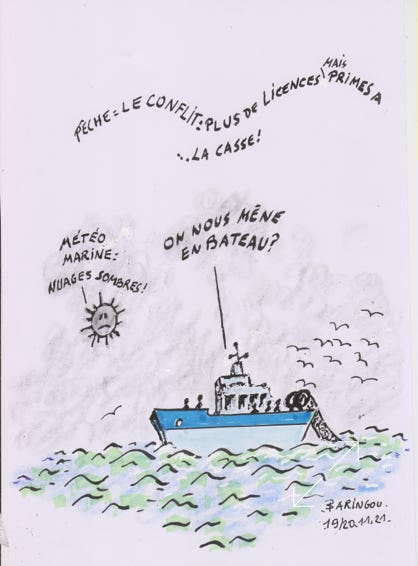 PÊCHE = LE CONFLIT: PLUS DE LICENCES MAIS PRIMES A
...LA CASSE!
ON NOUS MÈNE
EN BATEAU?
MÉTÉO
MARINE:
NUAGES SOMBRES!
BARINGOU.
19/20.11.21.